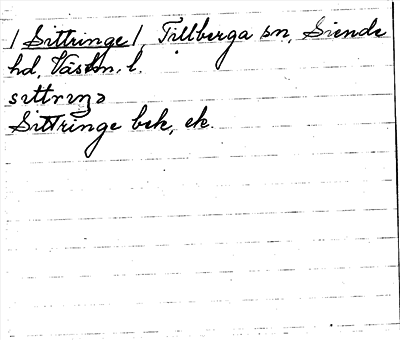 /Sittringe/, Tillberga sn, Siende
hd, Västm. l.
sıttrıŋə
Sittringe bek, ek.